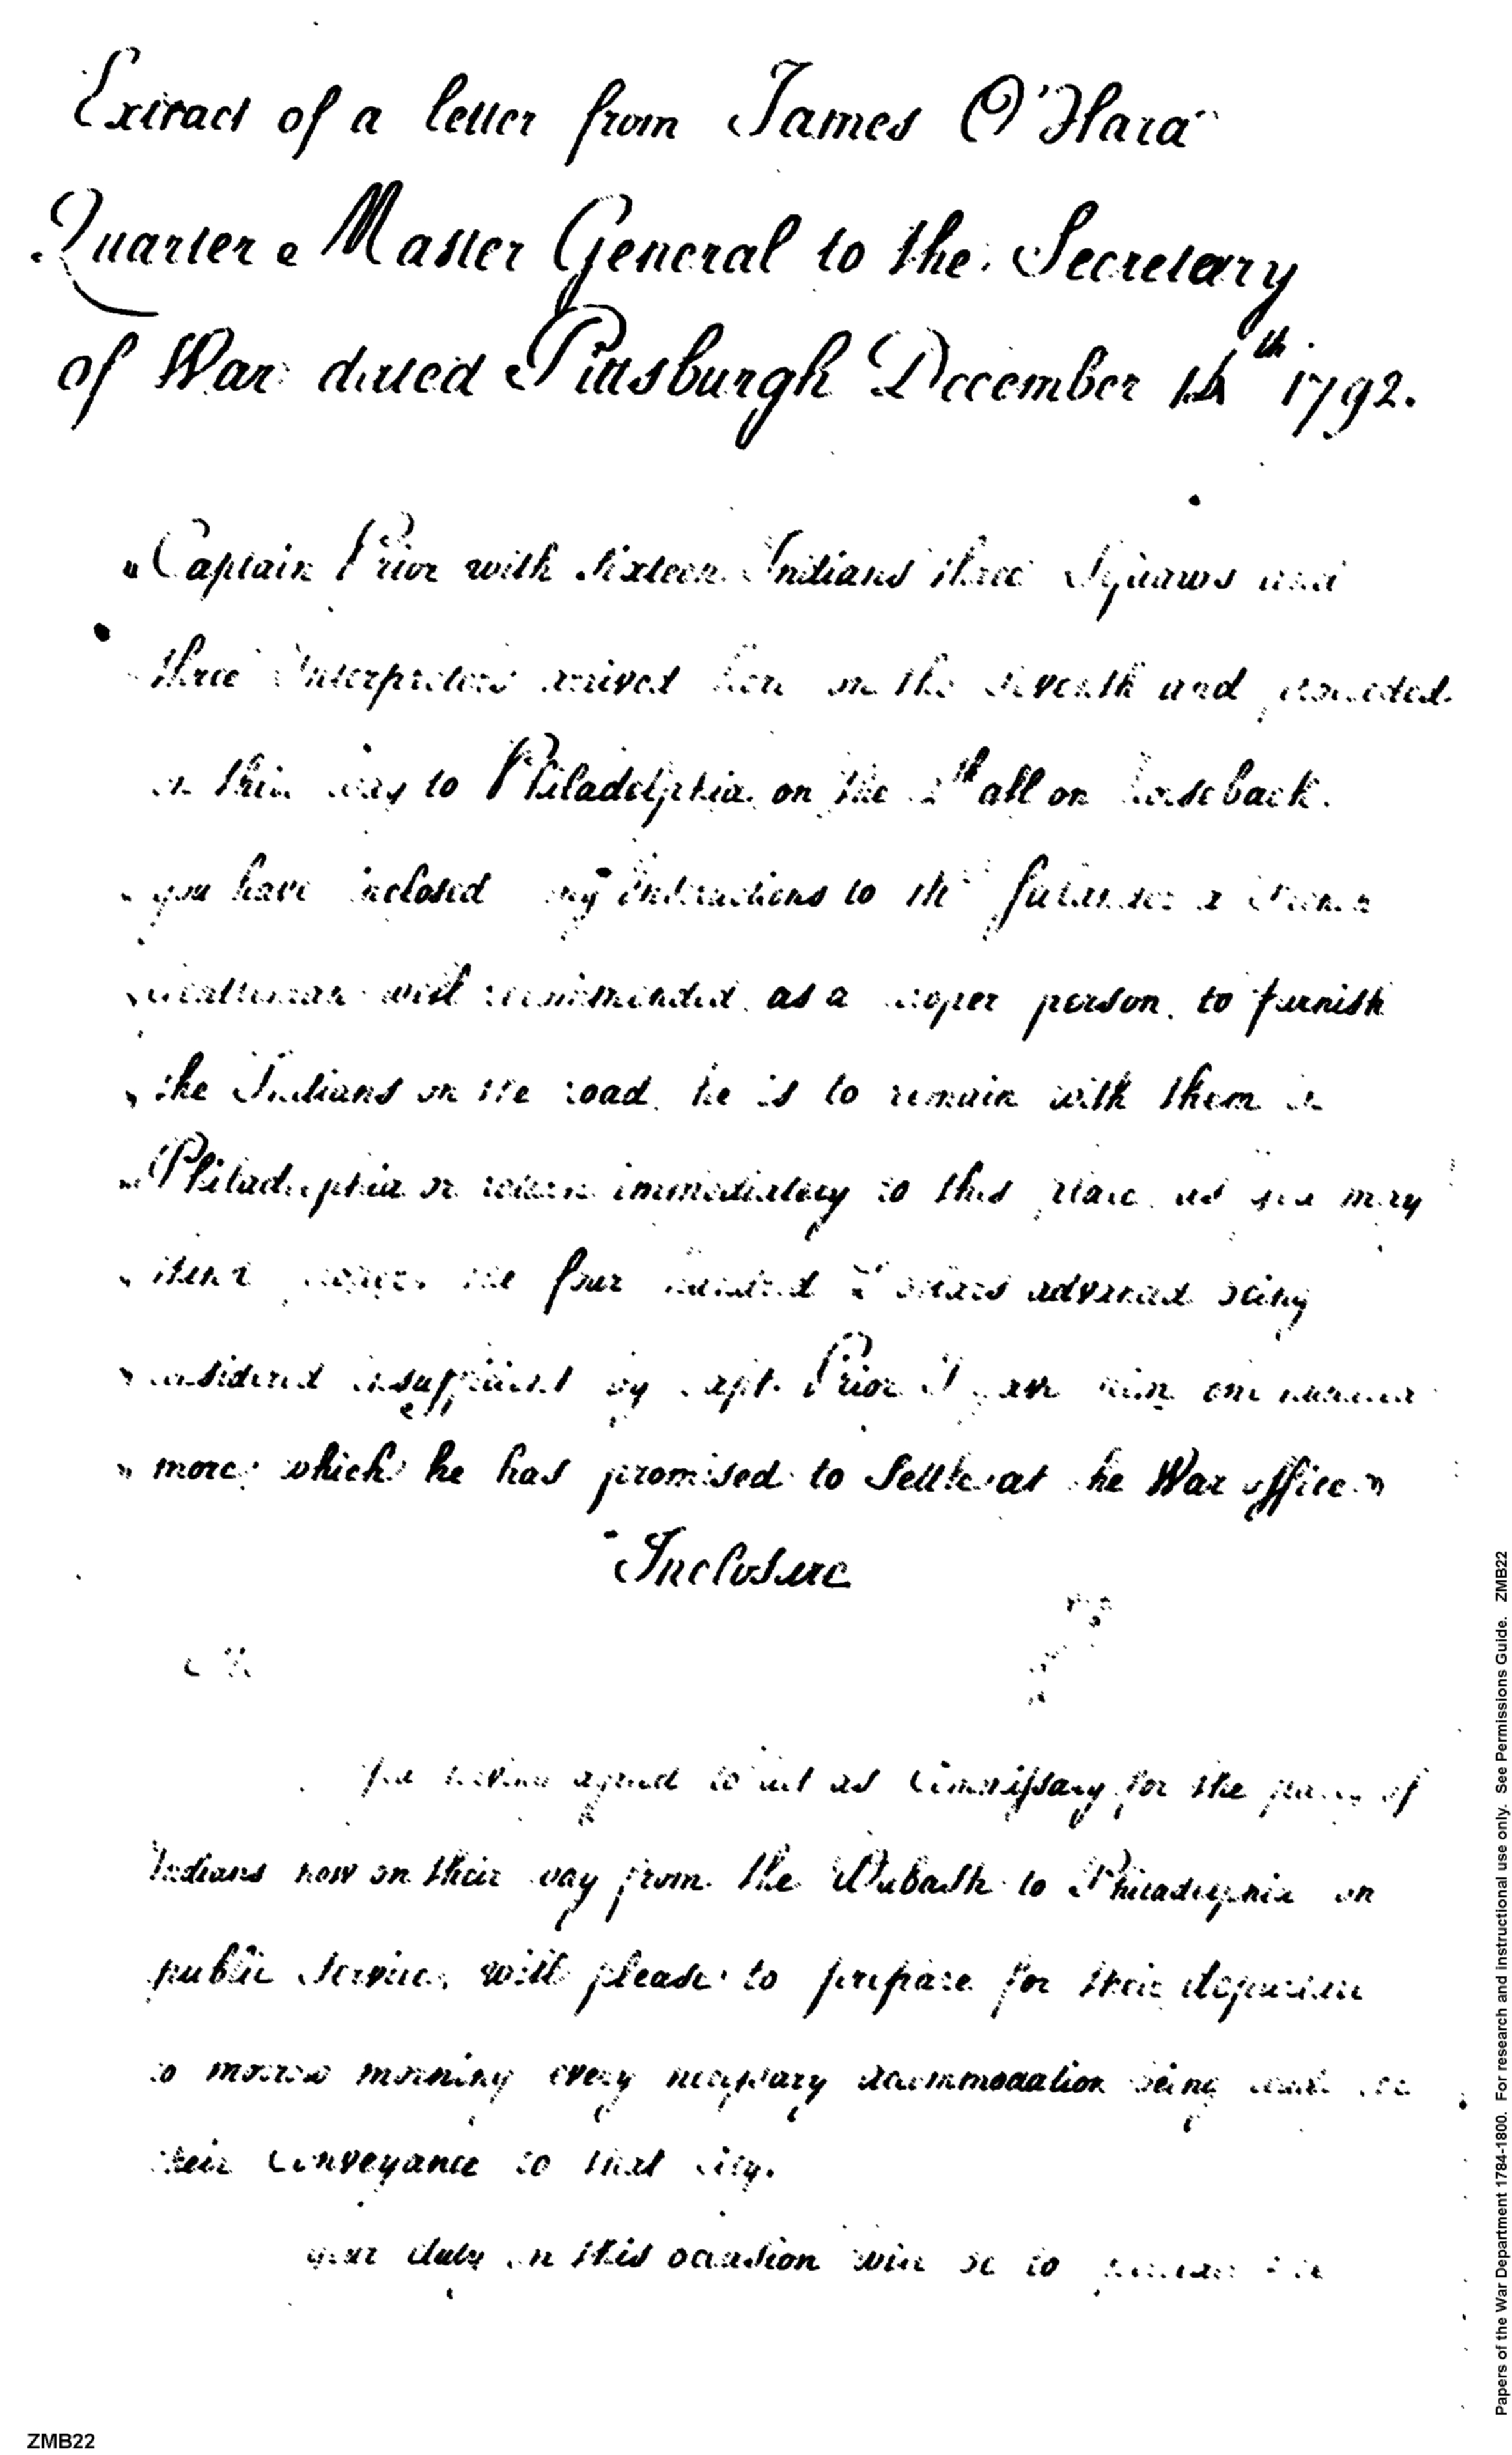 Extract of a letter from James O'Hara
Quarter Master General to the Secretary
of War dated Pittsburgh December 14th 1792.
"Captain Prior with sixteen Indians three Squaws and
three Interpreters arrived here on the seventh and proceeded
on their way to Philadelphia on the th all on horseback.
" you have inclosed my Instructions to Mr a
" Gentleman well recommended as a proper person to furnish
" the Indians on the road he is to remain with them in
" Philadelphia or return immediately to this place as you may
" the four hundred Dollars advanced being
" considered insufficient by Capt. Prior I gave him one hundred
" more which he has promised to settle at the War office "
Inclosure
You having agreed to act as Commissary for the party of
Indians now on their way from the Wabash to Philadelphia on
public service, will please to prepare for their departure
to morrow morning every necessary accommodation being made for
their Conveyance to that City.
your duty on this occasion will be to
Papers of the War Department 1784-1800. For research and instructional use only. See Permissions Guide. ZMB22
ZMB22